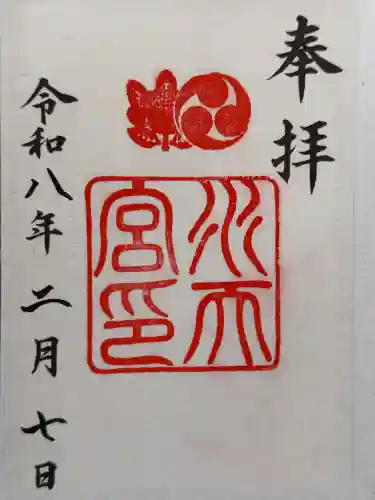 奉拝
水天
宮印
令和八年二月七日